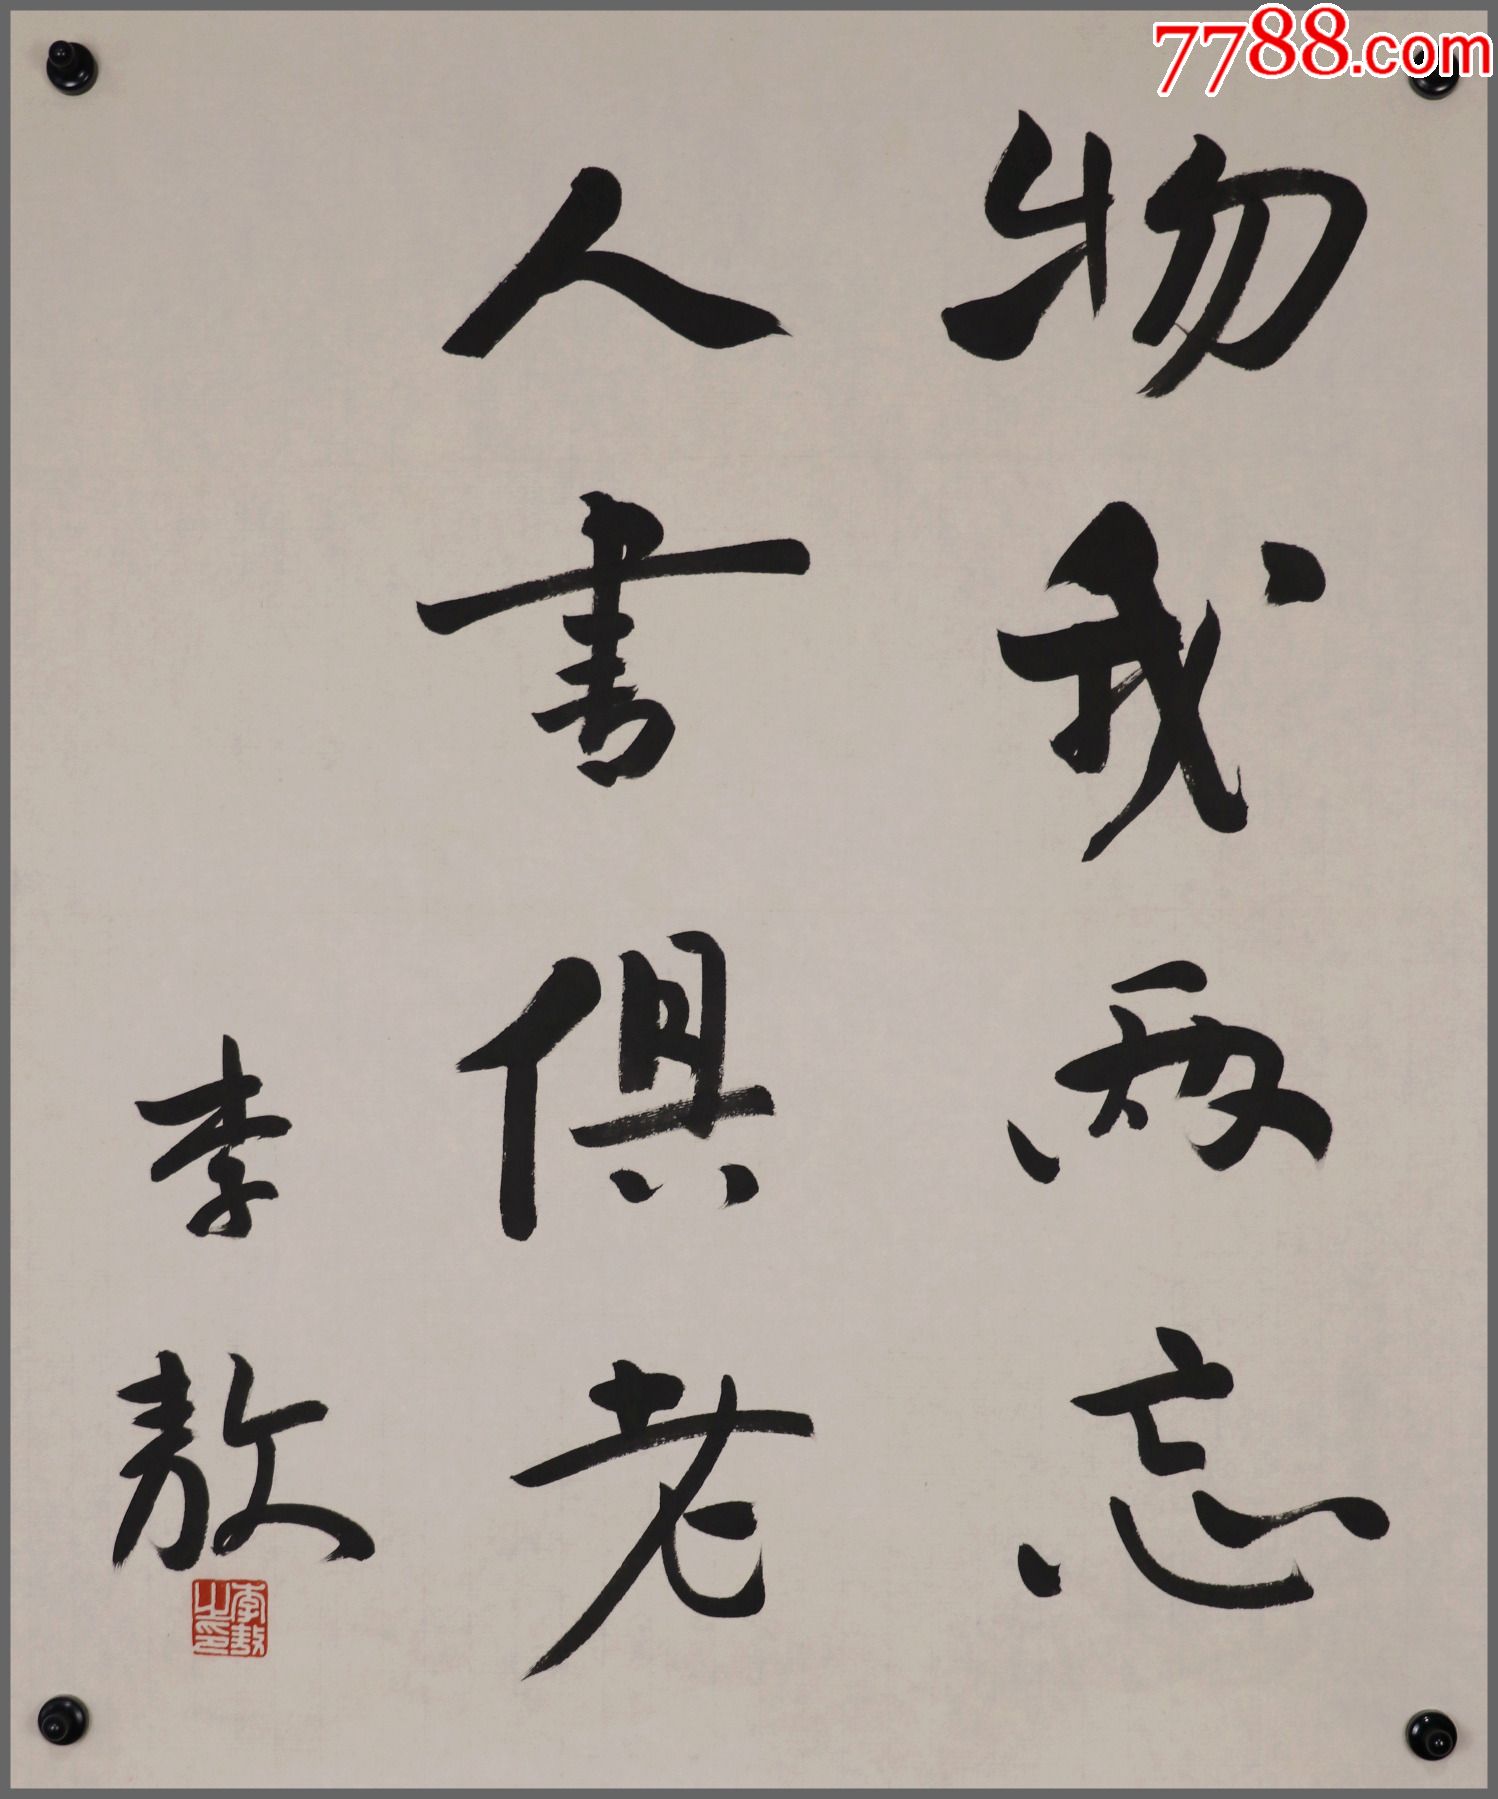 7788.com
物我两忘
人书俱老
李敖
李敖之印